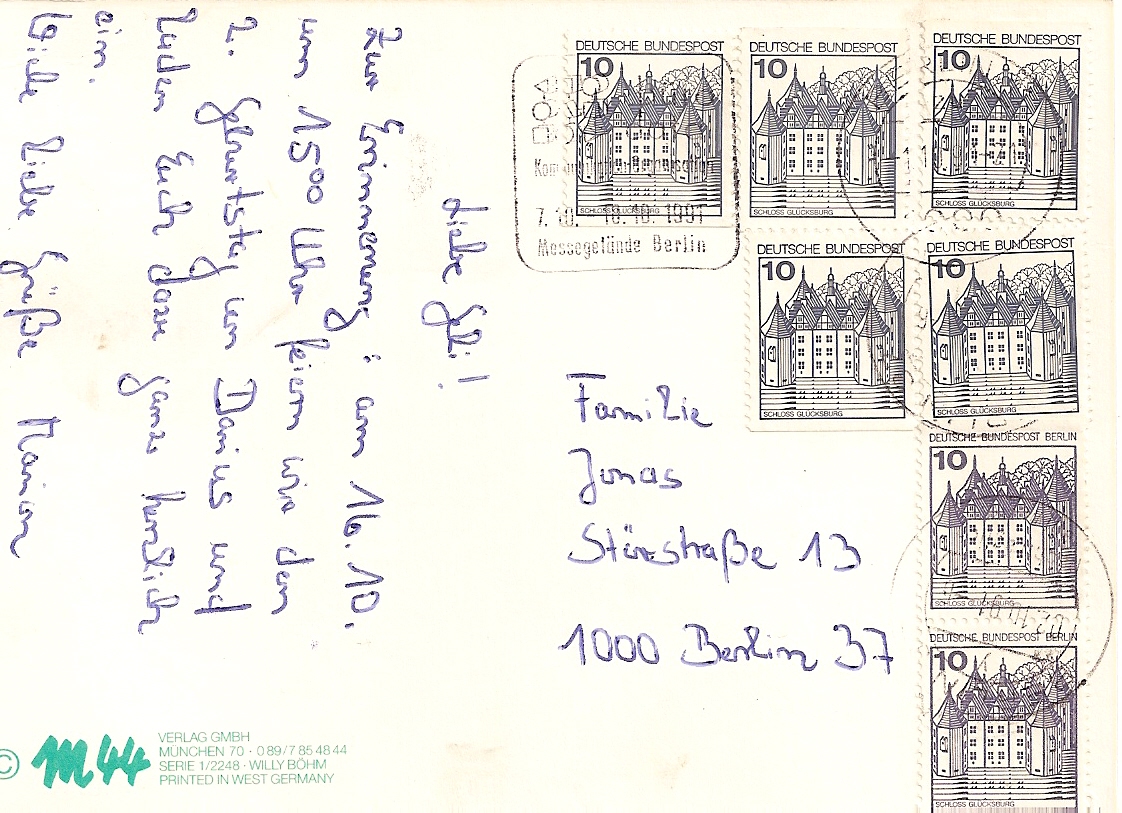 Liebe Geli!
Zur Erinnerung: am 16.10.
um 1500 Uhr feiern wir den
2. Geburtstag von Darius und
laden Euch dazu ganz herzlich
ein.
Viele liebe Grüße Marion
Familie
Jonas
Störstraße 13
1000 Berlin 37
DEUTSCHE BUNDESPOST
10
SCHLOSS GLÜCKSBURG
DEUTSCHE BUNDESPOST
10
SCHLOSS GLÜCKSBURG
DEUTSCHE BUNDESPOST
10
SCHLOSS GLÜCKSBURG
DEUTSCHE BUNDESPOST
10
SCHLOSS GLÜCKSBURG
DEUTSCHE BUNDESPOST
10
SCHLOSS GLÜCKSBURG
DEUTSCHE BUNDESPOST BERLIN
10
SCHLOSS GLÜCKSBURG
DEUTSCHE BUNDESPOST BERLIN
10
SCHLOSS GLÜCKSBURG
7.10. - 10.10.1991
Messegelände Berlin
© M44
VERLAG GMBH
MÜNCHEN 70 · 089/7 85 48 44
SERIE 1/2248 · WILLY BÖHM
PRINTED IN WEST GERMANY